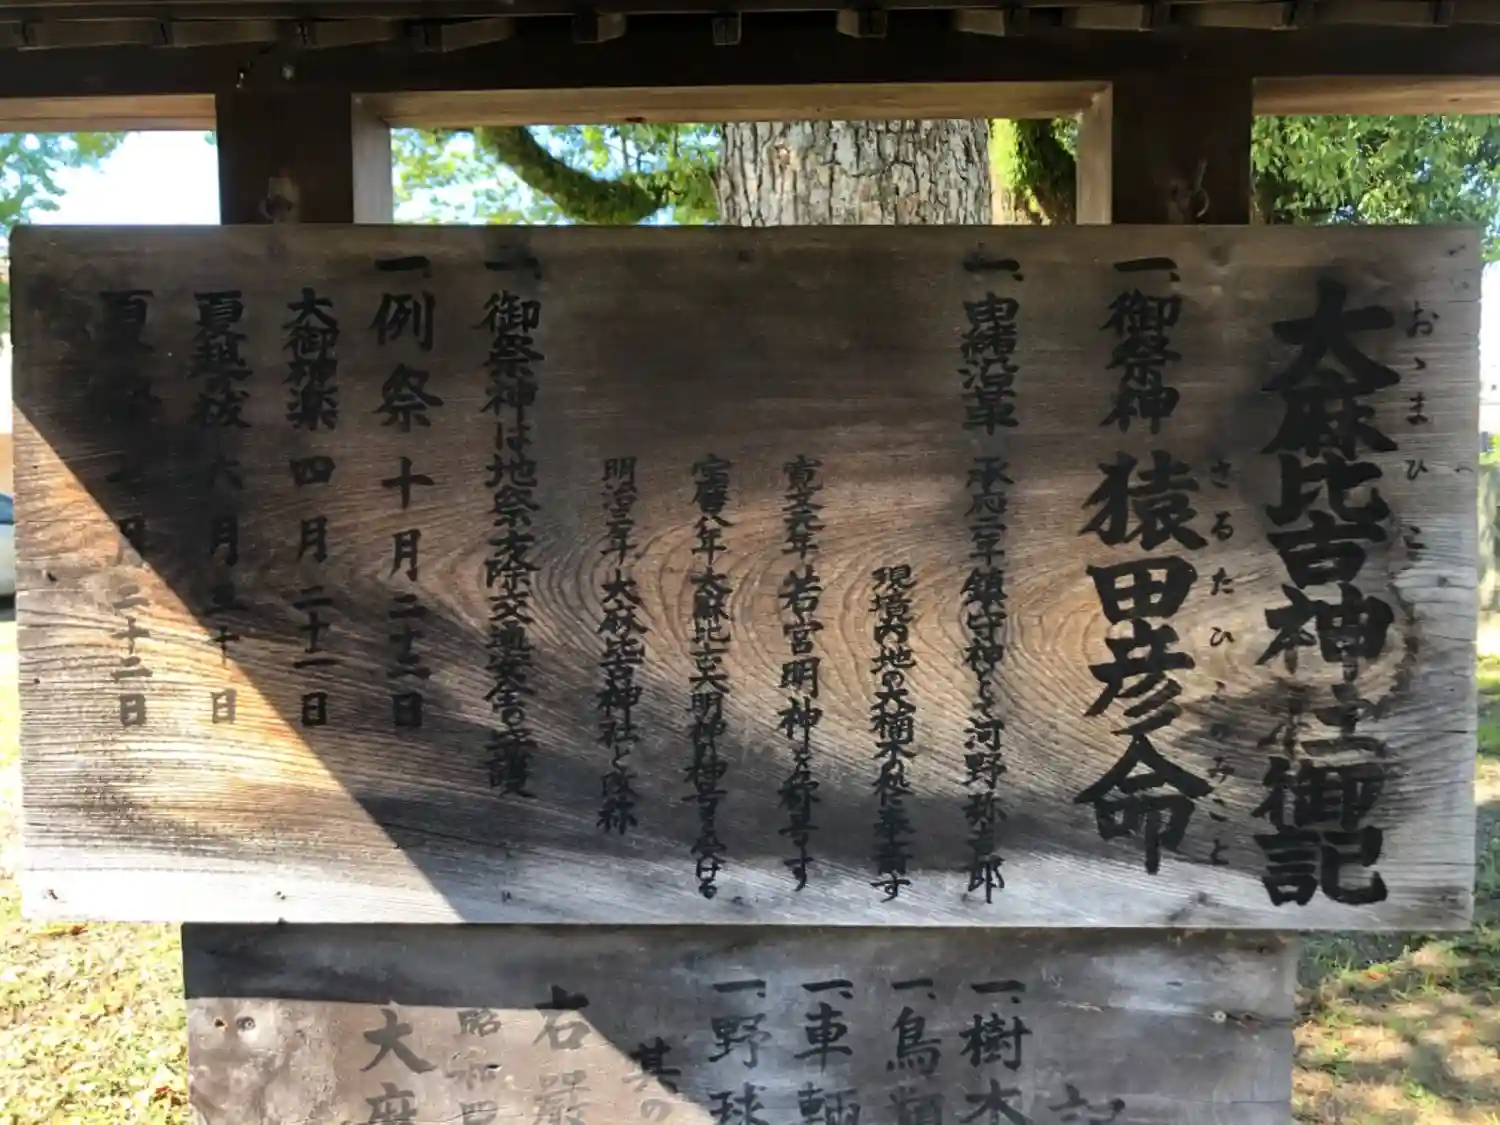 大麻比古神社御記
おゝまひこ
一、御祭神 猿田彦命
さるたひこのみこと
一、由緒沿革 承府二年鎮守神として河野弥太郎
現境内地の大楠木の処に奉斎す
寛文元年 若宮明神と称号す
宝暦八年 大麻比古大明神の神号を受ける
明治三年 大麻比古神社と改称
一、御祭神は地祭方除交通安全の守護
一、例祭 十月二十二日
大御神楽 四月二十一日
夏越の祓 六月三十日
夏 祭 七月二十二日
記
一、樹木
一、鳥類
一、車輌
一、野球
其の
右厳
昭和四
大麻